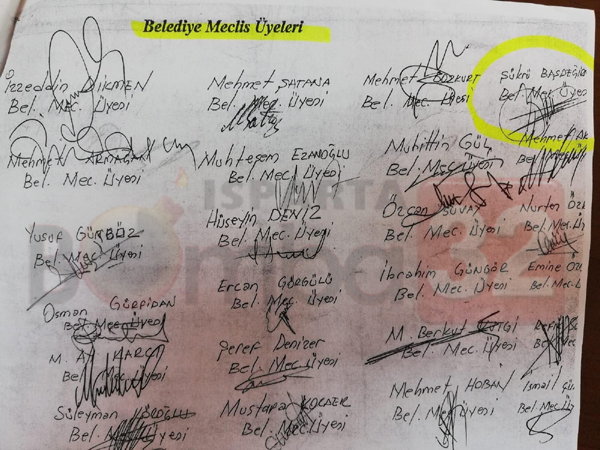 Belediye Meclis Üyeleri
İzzeddin DİKMEN
Bel. Mec. Üyesi
Mehmet SATANA
Bel. Mec. Üyesi
Mehmet BOZKURT
Bel. Mec. Üyesi
Şükrü
Bel. Mec. Üyesi
Mehmet ARMAĞAN
Bel. Mec. Üyesi
Muhteşem EZANOĞLU
Bel. Mec. Üyesi
Muhittin GÜL
Bel. Mec. Üyesi
Mehmet
Bel.
Yusuf GÜRBÖZ
Bel. Mec. Üyesi
Hüseyin DENİZ
Bel. Mec. Üyesi
Özcan SUVAY
Bel. Mec. Üyesi
Nurten
Bel. Mec. Ü
Osman
Bel. Mec. Üyesi
Ercan GÖRGÜLÜ
Bel. Mec. Üyesi
İbrahim GÜNGÖR
Bel. Mec. Üyesi
Emine
Bel. Mec.
M. Ali
Bel. Mec. Üyesi
Şeref Denizer
Bel. Mec. Üyesi
M. Berkut
Bel. Mec. Üyesi
Bel.
Süleyman
Bel. Mec. Üyesi
Mustafa KOÇAER
Bel. Mec. Üyesi
Mehmet HOBAN
Bel. Mec. Üyesi
İsmail
Bel. Mec. Ü
ISPARTA
bomba 32